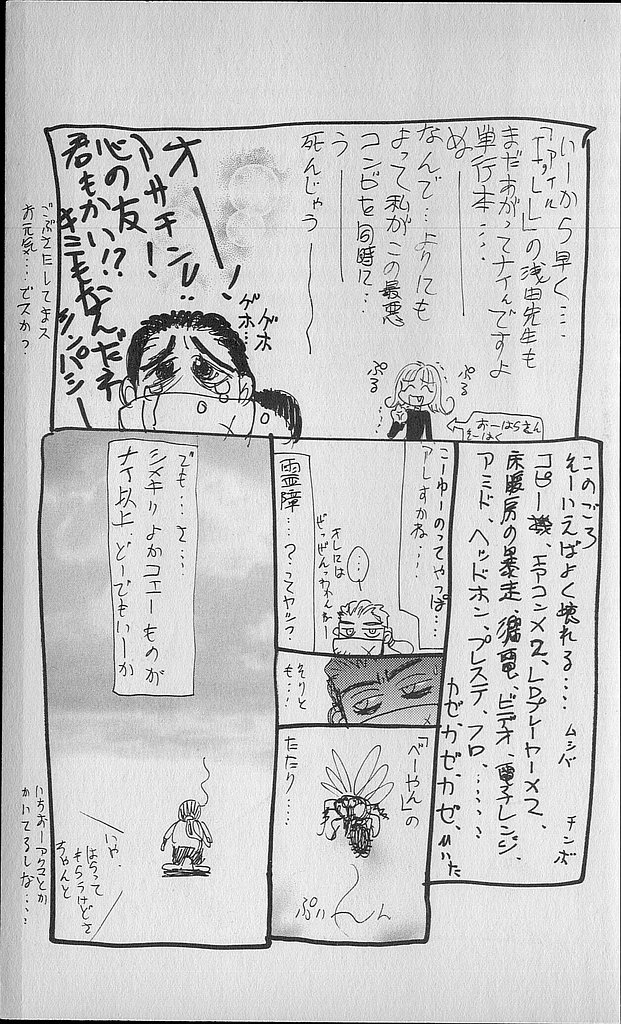 いーから早く…
「ナッシュール」の浅田先生も
まだあがってナイんですよ
単行本…
ぬ———
なんで…よりにも
よって私がこの最悪
コンビを同時に…
う———
死んじゃう———
オ———!
アサチン!
心の友!
君もかい!?
キミもなんだネ
シンパシー
ゲホ
ゲホ…
ごぶさたしてマス
お元気…でスか?
ぷる
ぷる
おーはらさん
このごろ
そーいえばよく壊れる…
コピー機、エアコン×2、LDプレーヤー×2、
床暖房の暴走、漏電、ビデオ、電子レンジ、
アミド、ヘッドホン、プレステ、フロ、……
ムシバ
チンボ
カゼ、カゼ、カゼ、ひいた
こーゆーのってやっぱ…
アレすかね…
…
オレには
ぜっぜんっわかんねー
霊障…?ってヤツ?
それと
も…!
「べーやん」の
たたり…
ぷい〜んん
でも…さ…
シメキリよかコエーものが
ナイ以上…どーでもいーか
いや、
はらって
もらうけどさ
ちゃんと
いちおーアクマとか
かいてるしな…